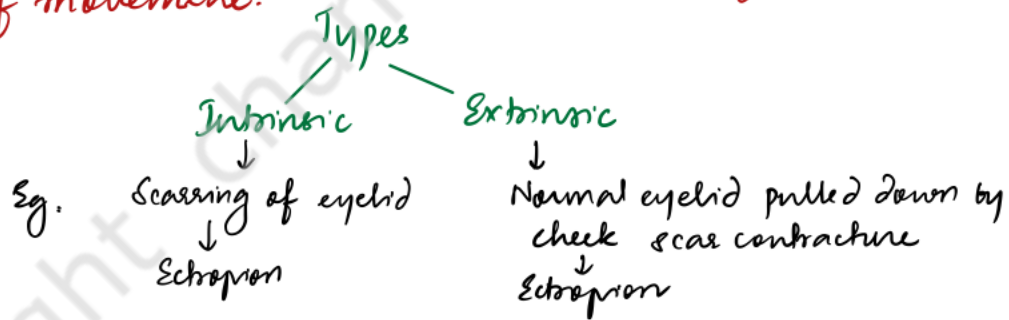 of movement.
Types
Intrinsic Extrinsic
Eg. Scarring of eyelid Normal eyelid pulled down by
cheek scar contracture
Ectropion Ectropion